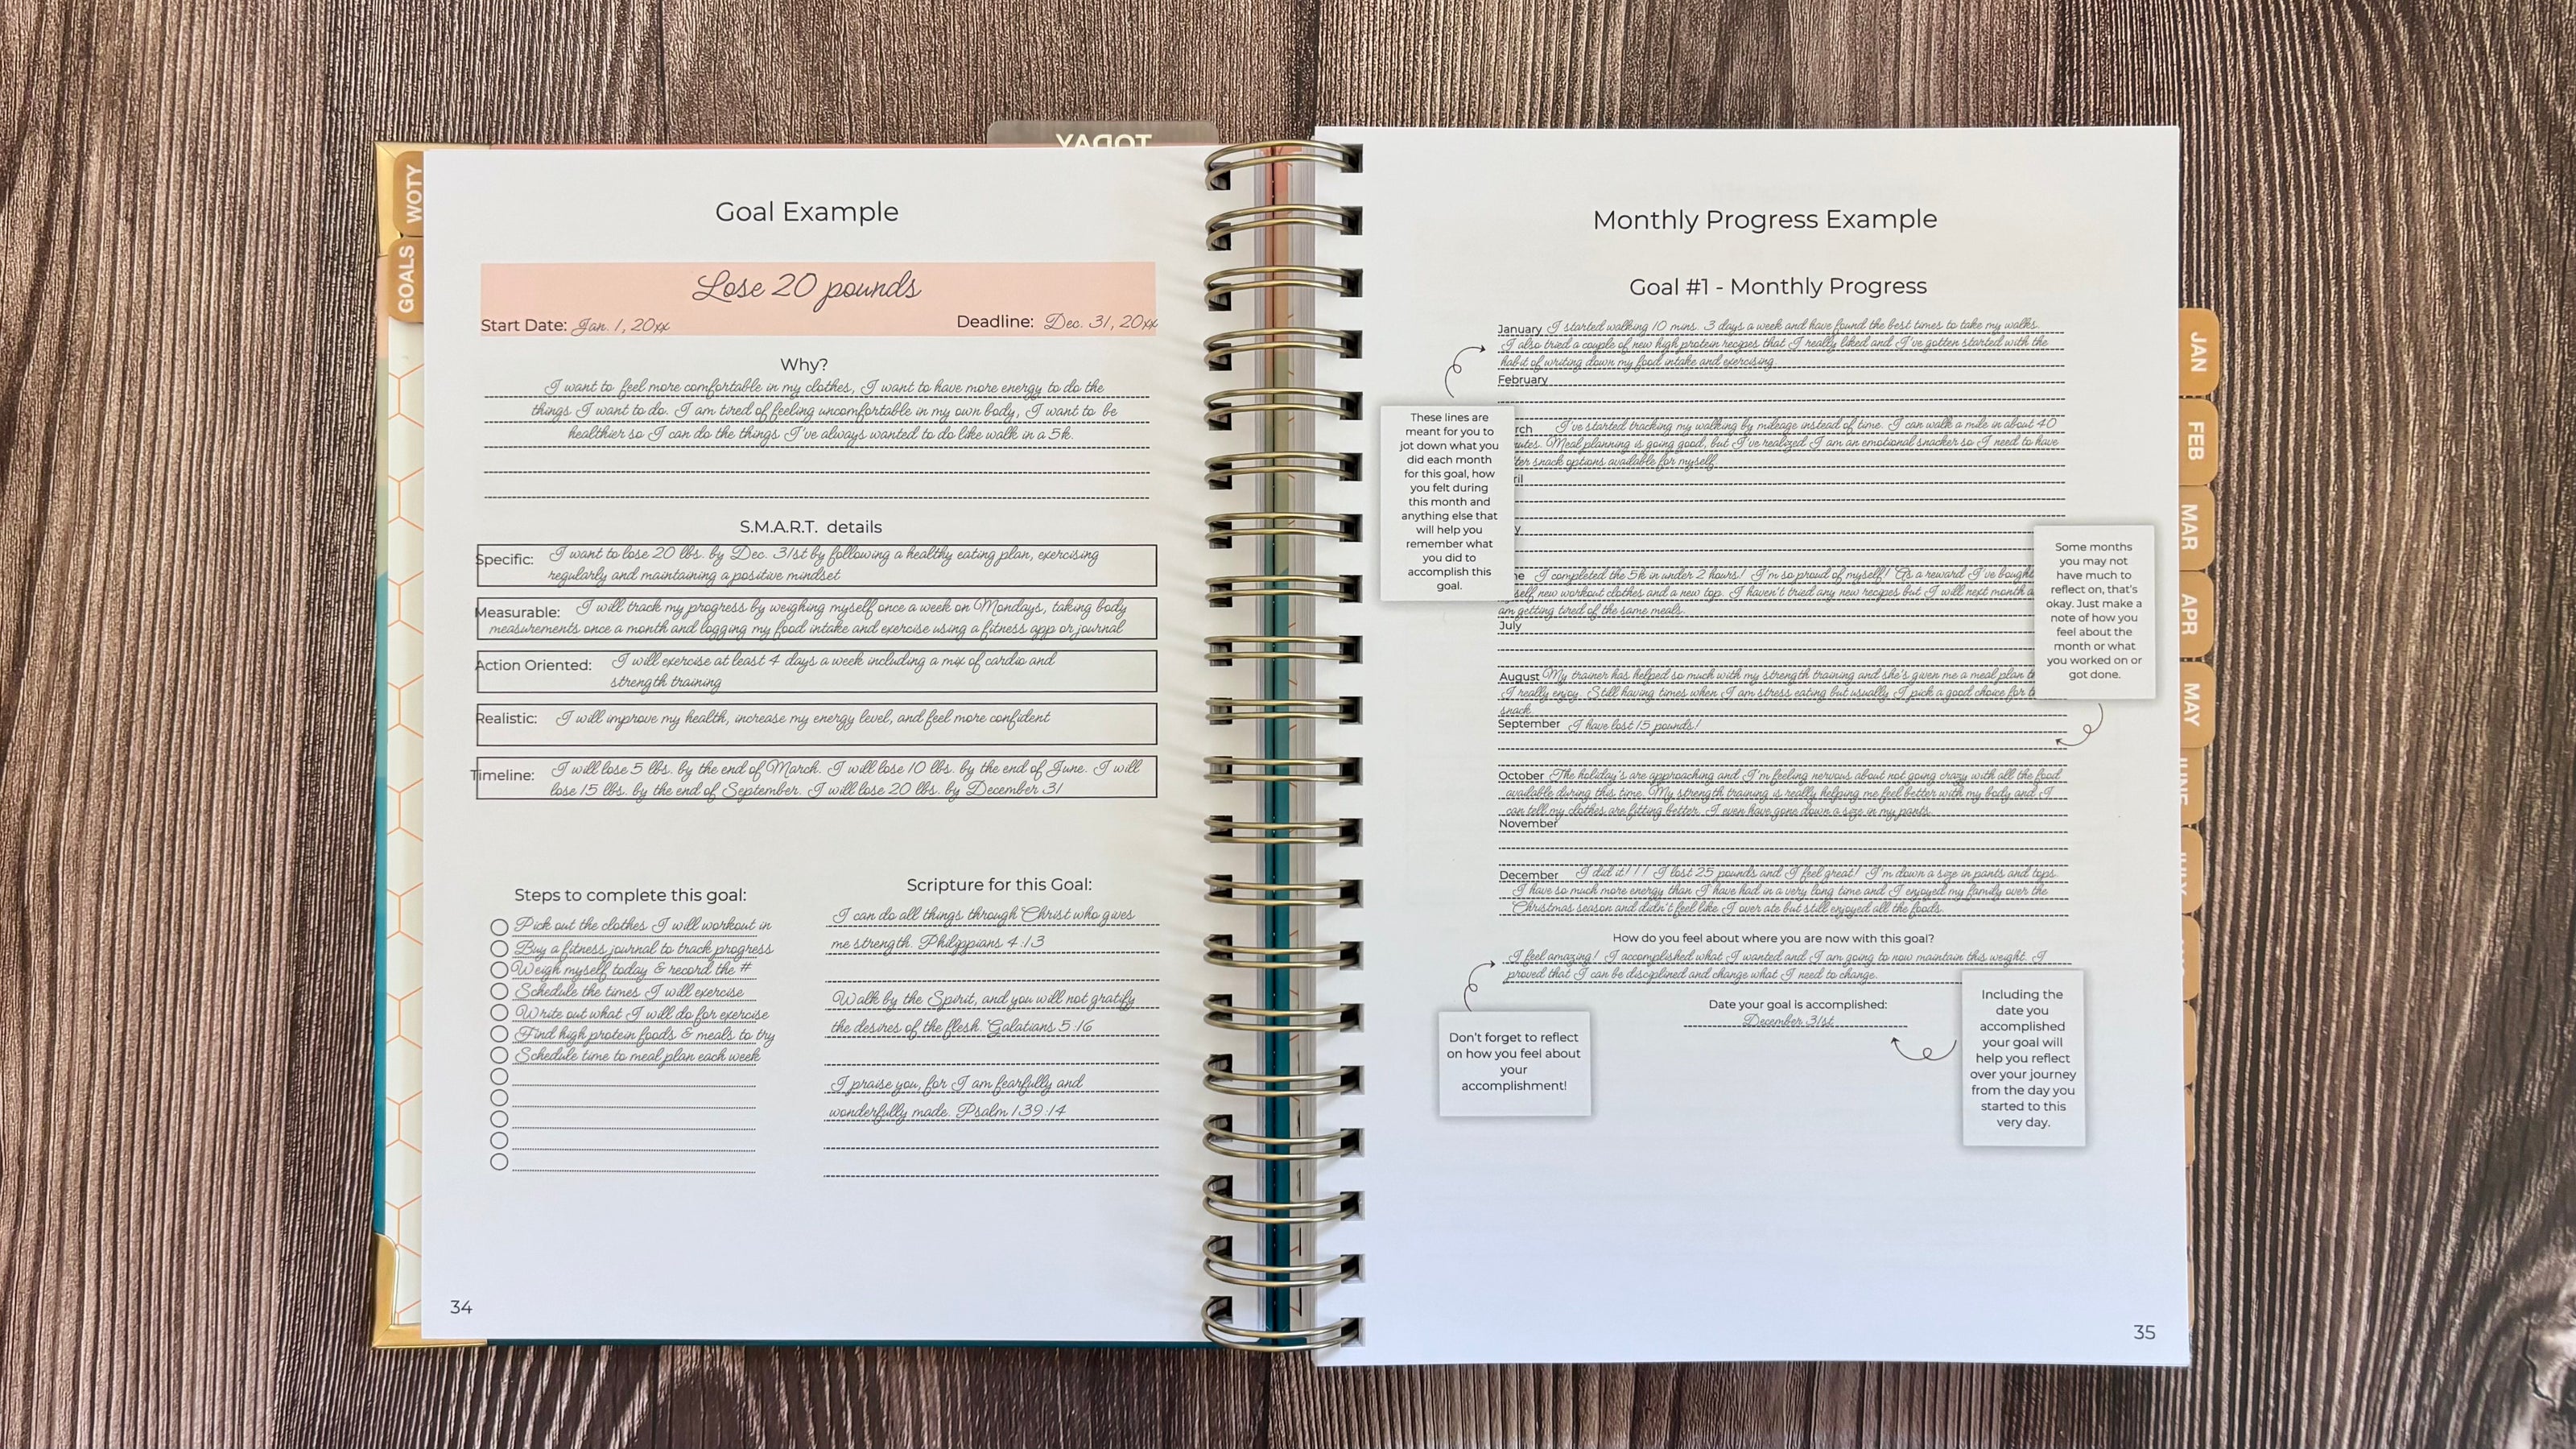 TODAY
WOTY
GOALS
Goal Example
Lose 20 pounds
Start Date: Jan. 1, 20xx
Deadline: Dec. 31, 20xx
Why?
I want to feel more comfortable in my clothes, I want to have more energy to do the
things I want to do. I am tired of feeling uncomfortable in my own body, I want to be
healthier so I can do the things I've always wanted to do like walk in a 5k.
S.M.A.R.T. details
Specific: I want to lose 20 lbs. by Dec. 31st by following a healthy eating plan, exercising
regularly and maintaining a positive mindset
Measurable: I will track my progress by weighing myself once a week on Mondays, taking body
measurements once a month and logging my food intake and exercise using a fitness app or journal
Action Oriented: I will exercise at least 4 days a week including a mix of cardio and
strength training
Realistic: I will improve my health, increase my energy level, and feel more confident
Timeline: I will lose 5 lbs. by the end of March. I will lose 10 lbs. by the end of June. I will
lose 15 lbs. by the end of September. I will lose 20 lbs. by December 31
Steps to complete this goal:
Pick out the clothes I will workout in
Buy a fitness journal to track progress
Weigh myself today & record the #
Schedule the times I will exercise
Write out what I will do for exercise
Find high protein foods & meals to try
Schedule time to meal plan each week
Scripture for this Goal:
I can do all things through Christ who gives
me strength. Philippians 4:13
Walk by the Spirit, and you will not gratify
the desires of the flesh. Galatians 5:16
I praise you, for I am fearfully and
wonderfully made. Psalm 139:14
34
Monthly Progress Example
Goal #1 - Monthly Progress
January I started walking 10 mins. 3 days a week and have found the best times to take my walks.
I also tried a couple of new high protein recipes that I really liked and I've gotten started with the
habit of writing down my food intake and exercising
February
rch I've started tracking my walking by mileage instead of time. I can walk a mile in about 40
utes. Meal planning is going good, but I've realized I am an emotional snacker so I need to have
ter snack options available for myself
ril
y
ne I completed the 5k in under 2 hours! I'm so proud of myself! As a reward I've bought
self new workout clothes and a new top. I haven't tried any new recipes but I will next month a
am getting tired of the same meals.
July
August My trainer has helped so much with my strength training and she's given me a meal plan t
I really enjoy. Still having times when I am stress eating but usually I pick a good choice for t
snack.
September I have lost 15 pounds!
October The holiday's are approaching and I'm feeling nervous about not going crazy with all the food
available during this time. My strength training is really helping me feel better with my body and I
can tell my clothes are fitting better. I even have gone down a size in my pants.
November
December I did it!!! I lost 25 pounds and I feel great! I'm down a size in pants and tops.
I have so much more energy than I have had in a very long time and I enjoyed my family over the
Christmas season and didn't feel like I over ate but still enjoyed all the foods.
How do you feel about where you are now with this goal?
I feel amazing! I accomplished what I wanted and I am going to now maintain this weight. I
proved that I can be disciplined and change what I need to change.
Date your goal is accomplished:
December 31st
These lines are
meant for you to
jot down what you
did each month
for this goal, how
you felt during
this month and
anything else that
will help you
remember what
you did to
accomplish this
goal.
Some months
you may not
have much to
reflect on, that's
okay. Just make a
note of how you
feel about the
month or what
you worked on or
got done.
Don't forget to reflect
on how you feel about
your
accomplishment!
Including the
date you
accomplished
your goal will
help you reflect
over your journey
from the day you
started to this
very day.
35
JAN
FEB
MAR
APR
MAY
JUNE
JULY